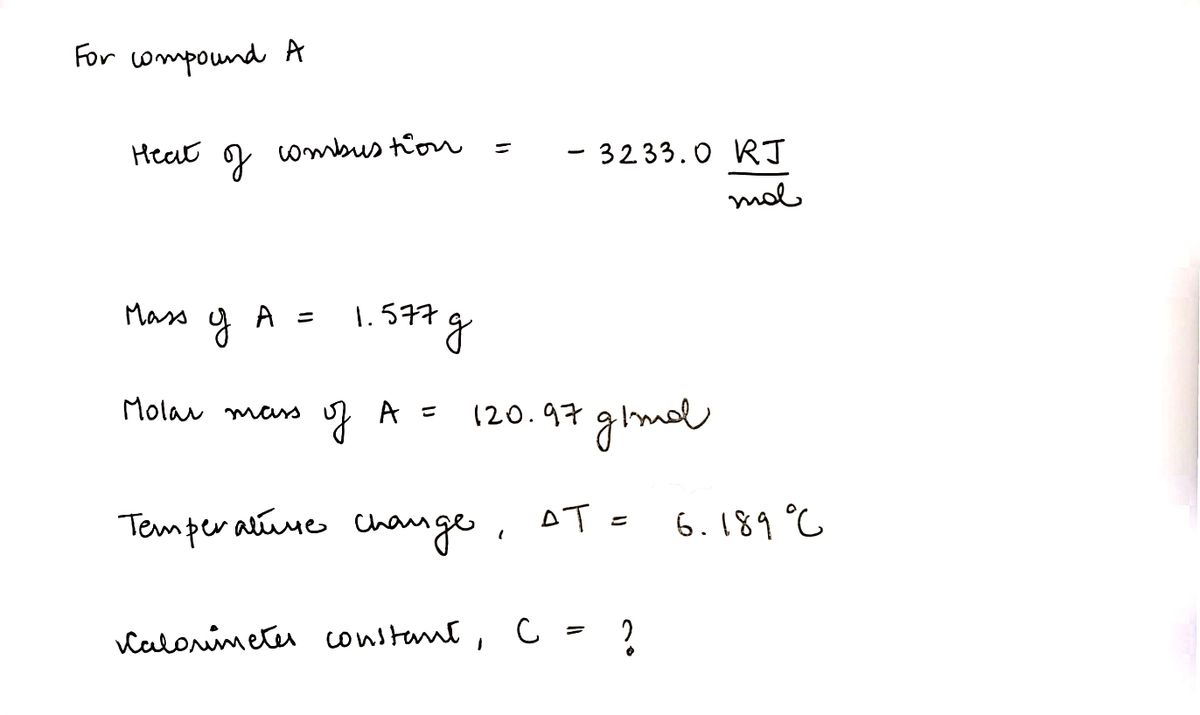 For compound A
Heat of combustion = - 3233.0 KJ
mol
Mass of A = 1.577 g
Molar mass of A = 120.97 g/mol
Temperature change, ΔT = 6.189 °C
Calorimeter constant, C = ?